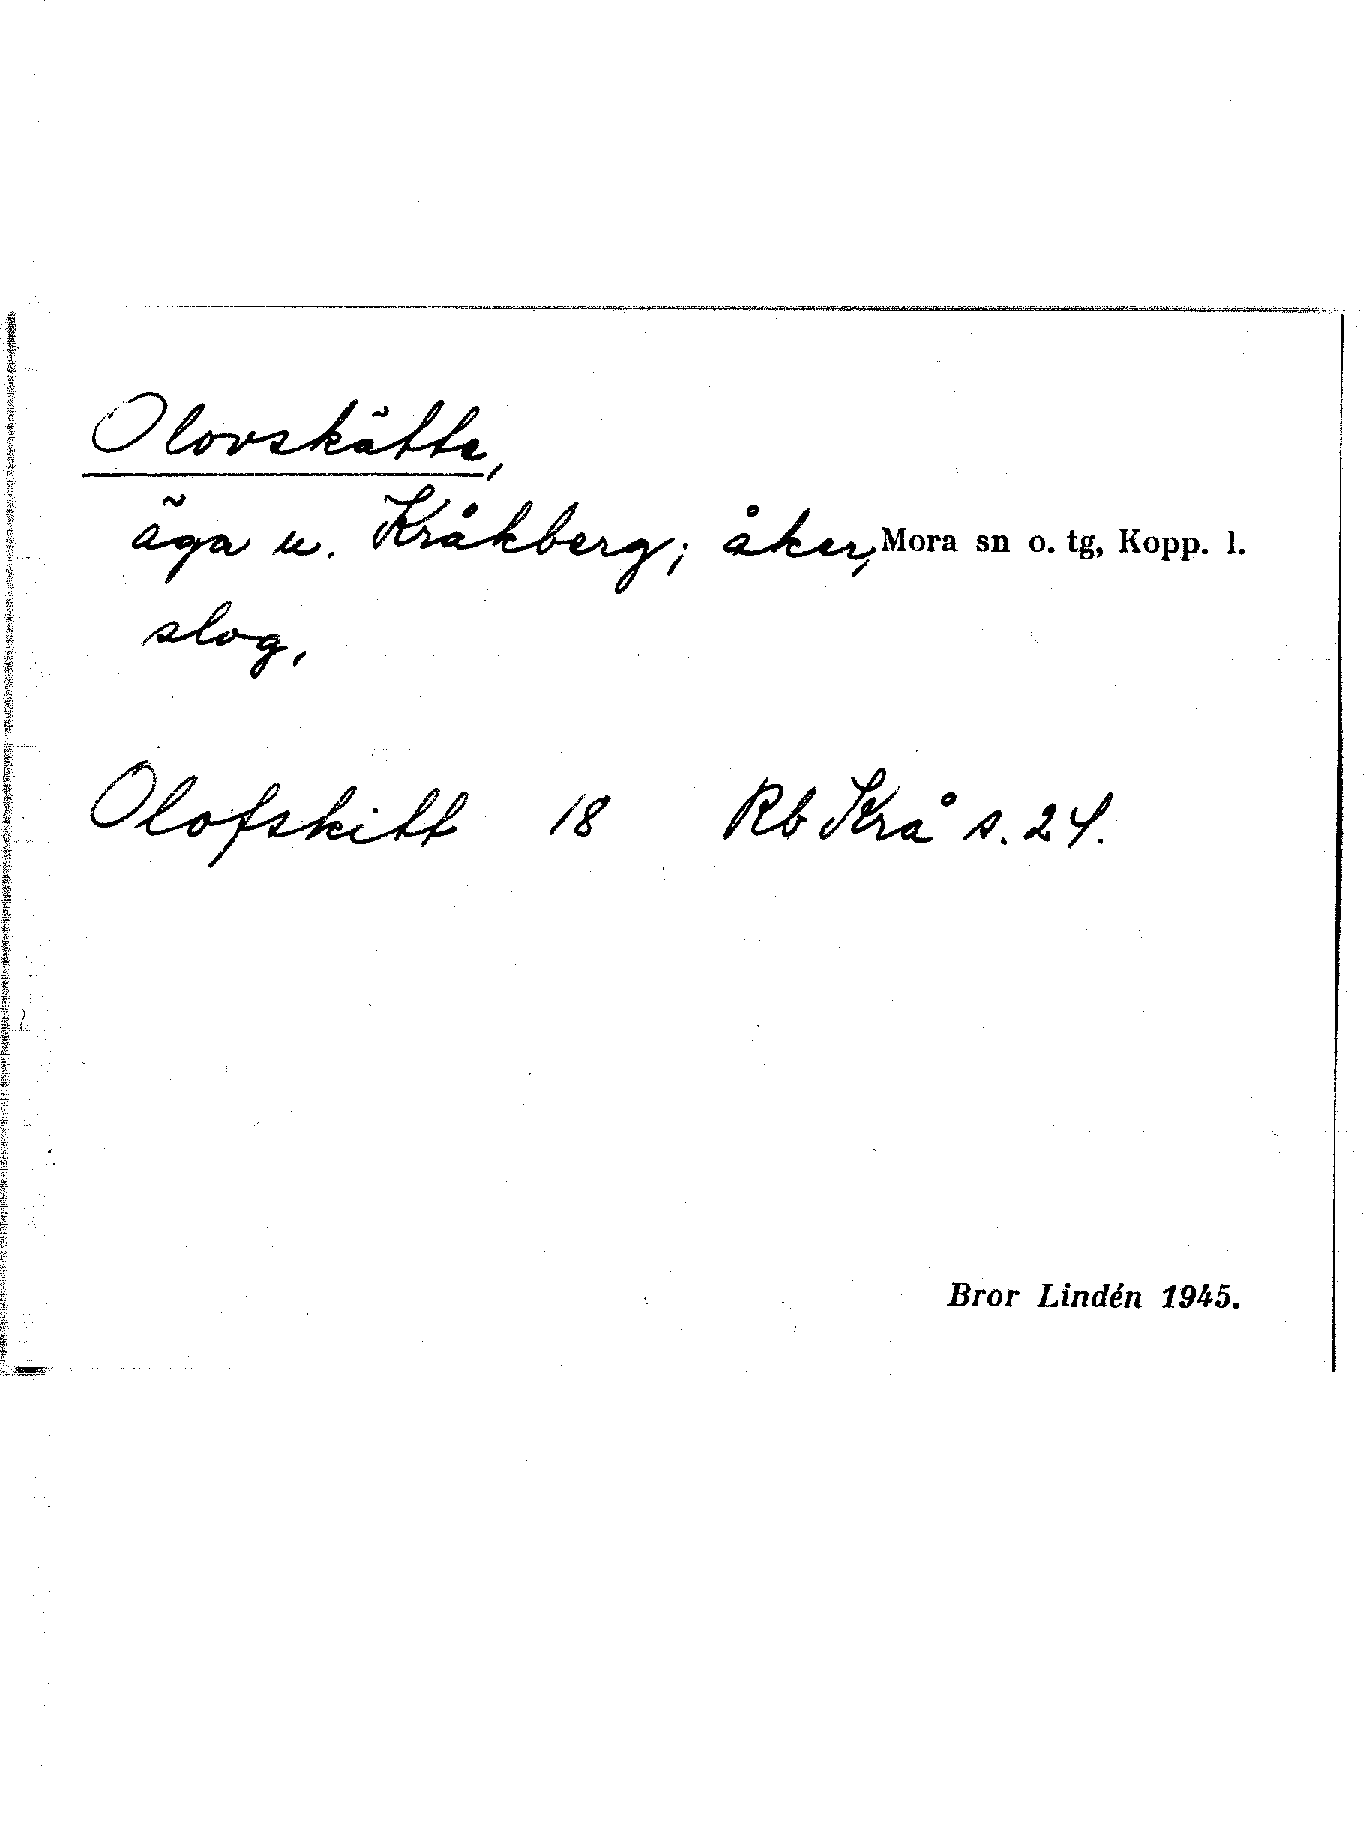 Olovskätte,
äga u. Kråkberg; åker, Mora sn o. tg, Kopp. l.
slog,
Olofskitt 18 Rb Krå s. 24.
Bror Lindén 1945.